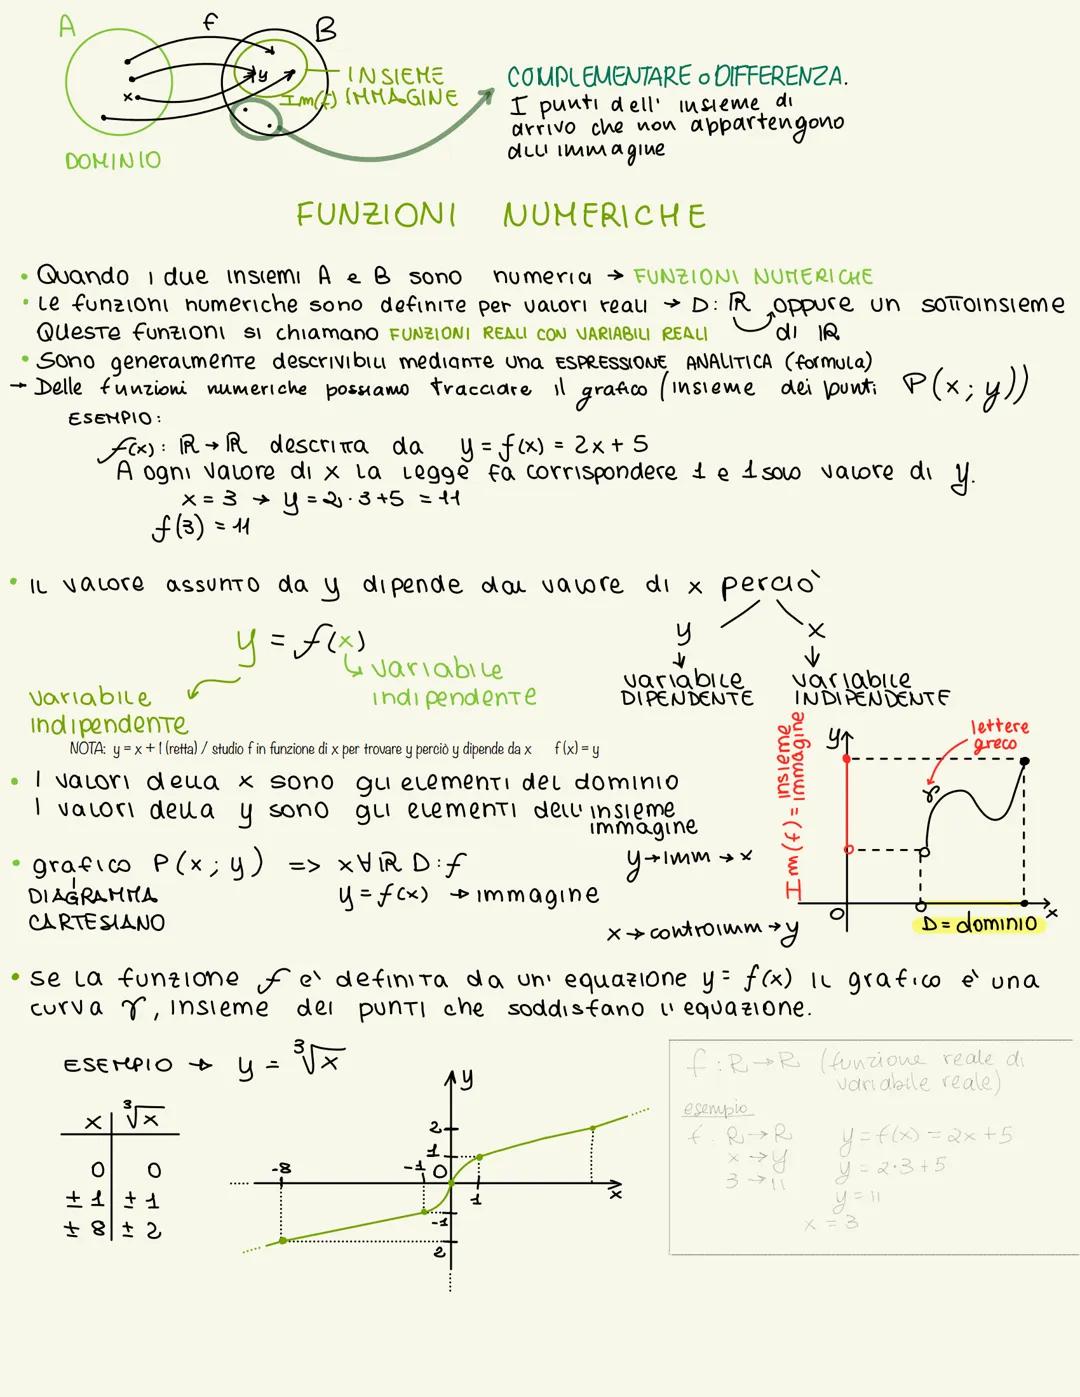 A
f
B
y
x
INSIEME
Im(f) IMMAGINE
DOMINIO
COMPLEMENTARE o DIFFERENZA.
I punti dell' insieme di
arrivo che non appartengono
all immagine
FUNZIONI NUMERICHE
• Quando i due insiemi A e B sono numerici → FUNZIONI NUMERICHE
• Le funzioni numeriche sono definite per valori reali → D: ℝ oppure un sottoinsieme
di ℝ
Queste funzioni si chiamano FUNZIONI REALI CON VARIABILI REALI
• Sono generalmente descrivibili mediante una ESPRESSIONE ANALITICA (formula)
→ Delle funzioni numeriche possiamo tracciare il grafico (insieme dei punti P(x; y))
ESEMPIO:
f(x): ℝ → ℝ descritta da y = f(x) = 2x + 5
A ogni valore di x la legge fa corrispondere 1 e 1 solo valore di y.
x = 3 → y = 2·3+5 = 11
f(3) = 11
• Il valore assunto da y dipende dal valore di x perciò
y = f(x)
variabile
indipendente
variabile
indipendente
y x
↓ ↓
variabile variabile
DIPENDENTE INDIPENDENTE
NOTA: y = x + 1 (retta) / studio f in funzione di x per trovare y perciò y dipende da x f(x) = y
• I valori della x sono gli elementi del dominio
I valori della y sono gli elementi dell'insieme
immagine
• grafico P(x; y) => x∀ℝ D:f
DIAGRAMMA
CARTESIANO
y = f(x) → immagine
y → imm → x
x → controimm → y
Im(f) = insieme
immagine
y
lettere
greco
γ
O
x
D = dominio
• Se la funzione f è definita da un' equazione y = f(x) il grafico è una
curva γ, insieme dei punti che soddisfano l'equazione.
ESEMPIO → y = ∛x
x | ∛x
0 | 0
± 1 | ± 1
± 8 | ± 2
y
2
1
-8
-1
O
1
x
-1
2
f : R→R (funzione reale di
variabile reale)
esempio
f: R→R y = f(x) = 2x +5
x → y y = 2·3+5
3 → 11 y = 11
x = 3